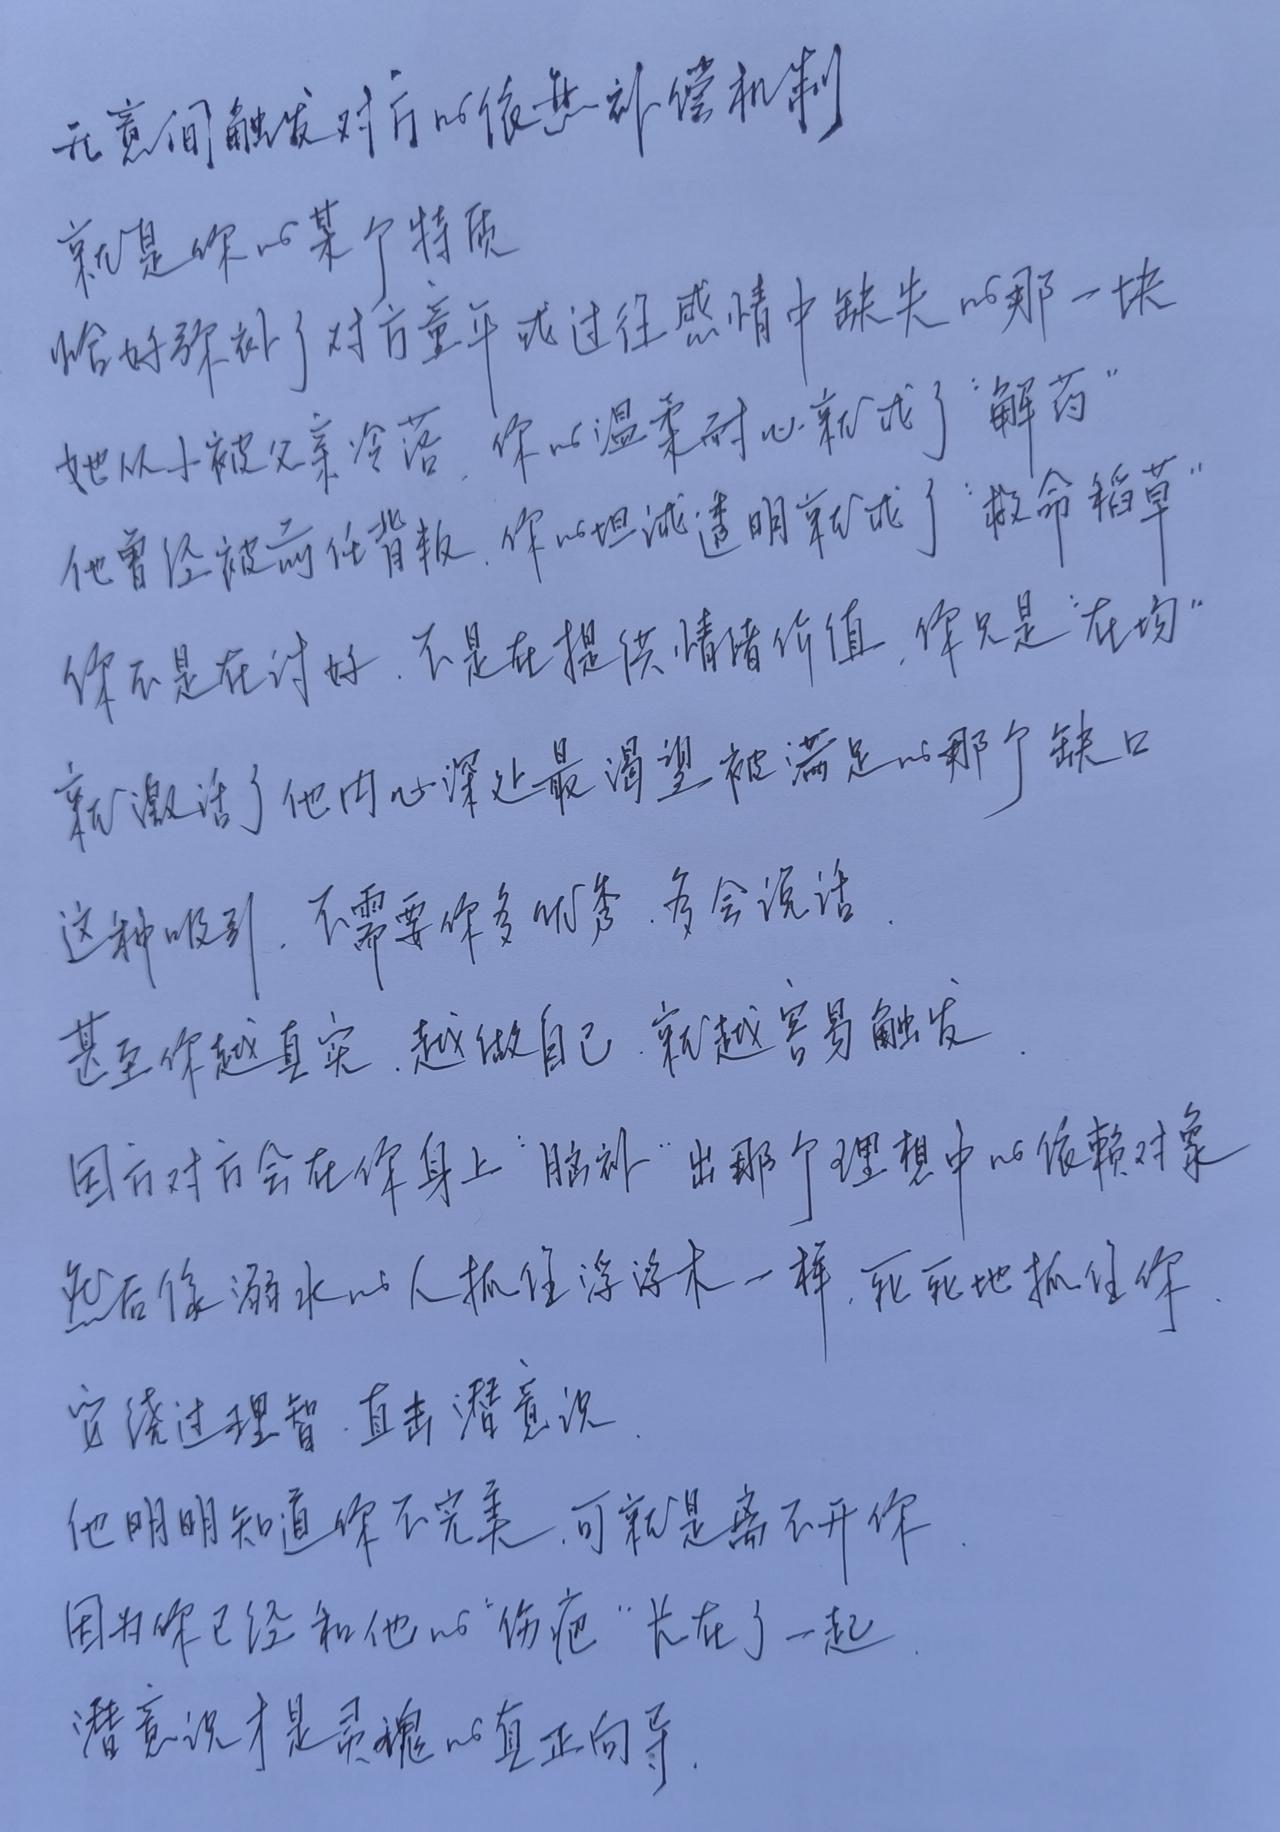 无意间触发对方的依恋补偿机制
就是你的某个特质
恰好弥补了对方童年或过往感情中缺失的那一块
她从小被父亲冷落，你的温柔耐心就成了“解药”
他曾经被前任背叛，你的坦诚透明就成了“救命稻草”
你不是在讨好，不是在提供情绪价值，你只是“在场”
就激活了他内心深处最渴望被满足的那个缺口
这种吸引，不需要你多优秀，多会说话，
甚至你越真实，越做自己，就越容易触发，
因为对方会在你身上“脑补”出那个理想中的依赖对象
然后像溺水的人抓住浮浮木一样，死死地抓住你，
它绕过理智，直击潜意识，
他明明知道你不完美，可就是离不开你，
因为你已经和他的“伤疤”长在了一起，
潜意识才是灵魂的真正向导，